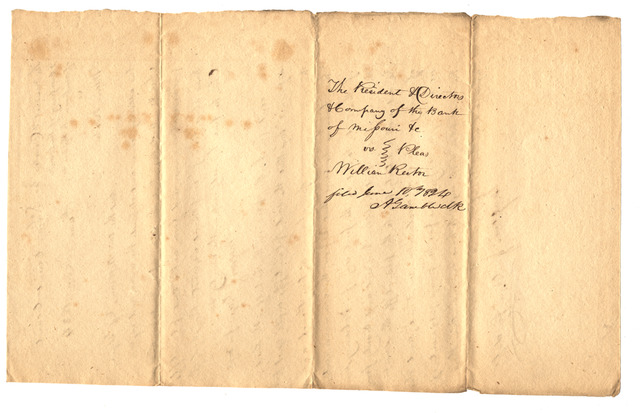 The President & Directors
& Company of the Bank
of Missouri &c.
vs } Pleas
William Rector
filed June 18 1824
A Gamble clk